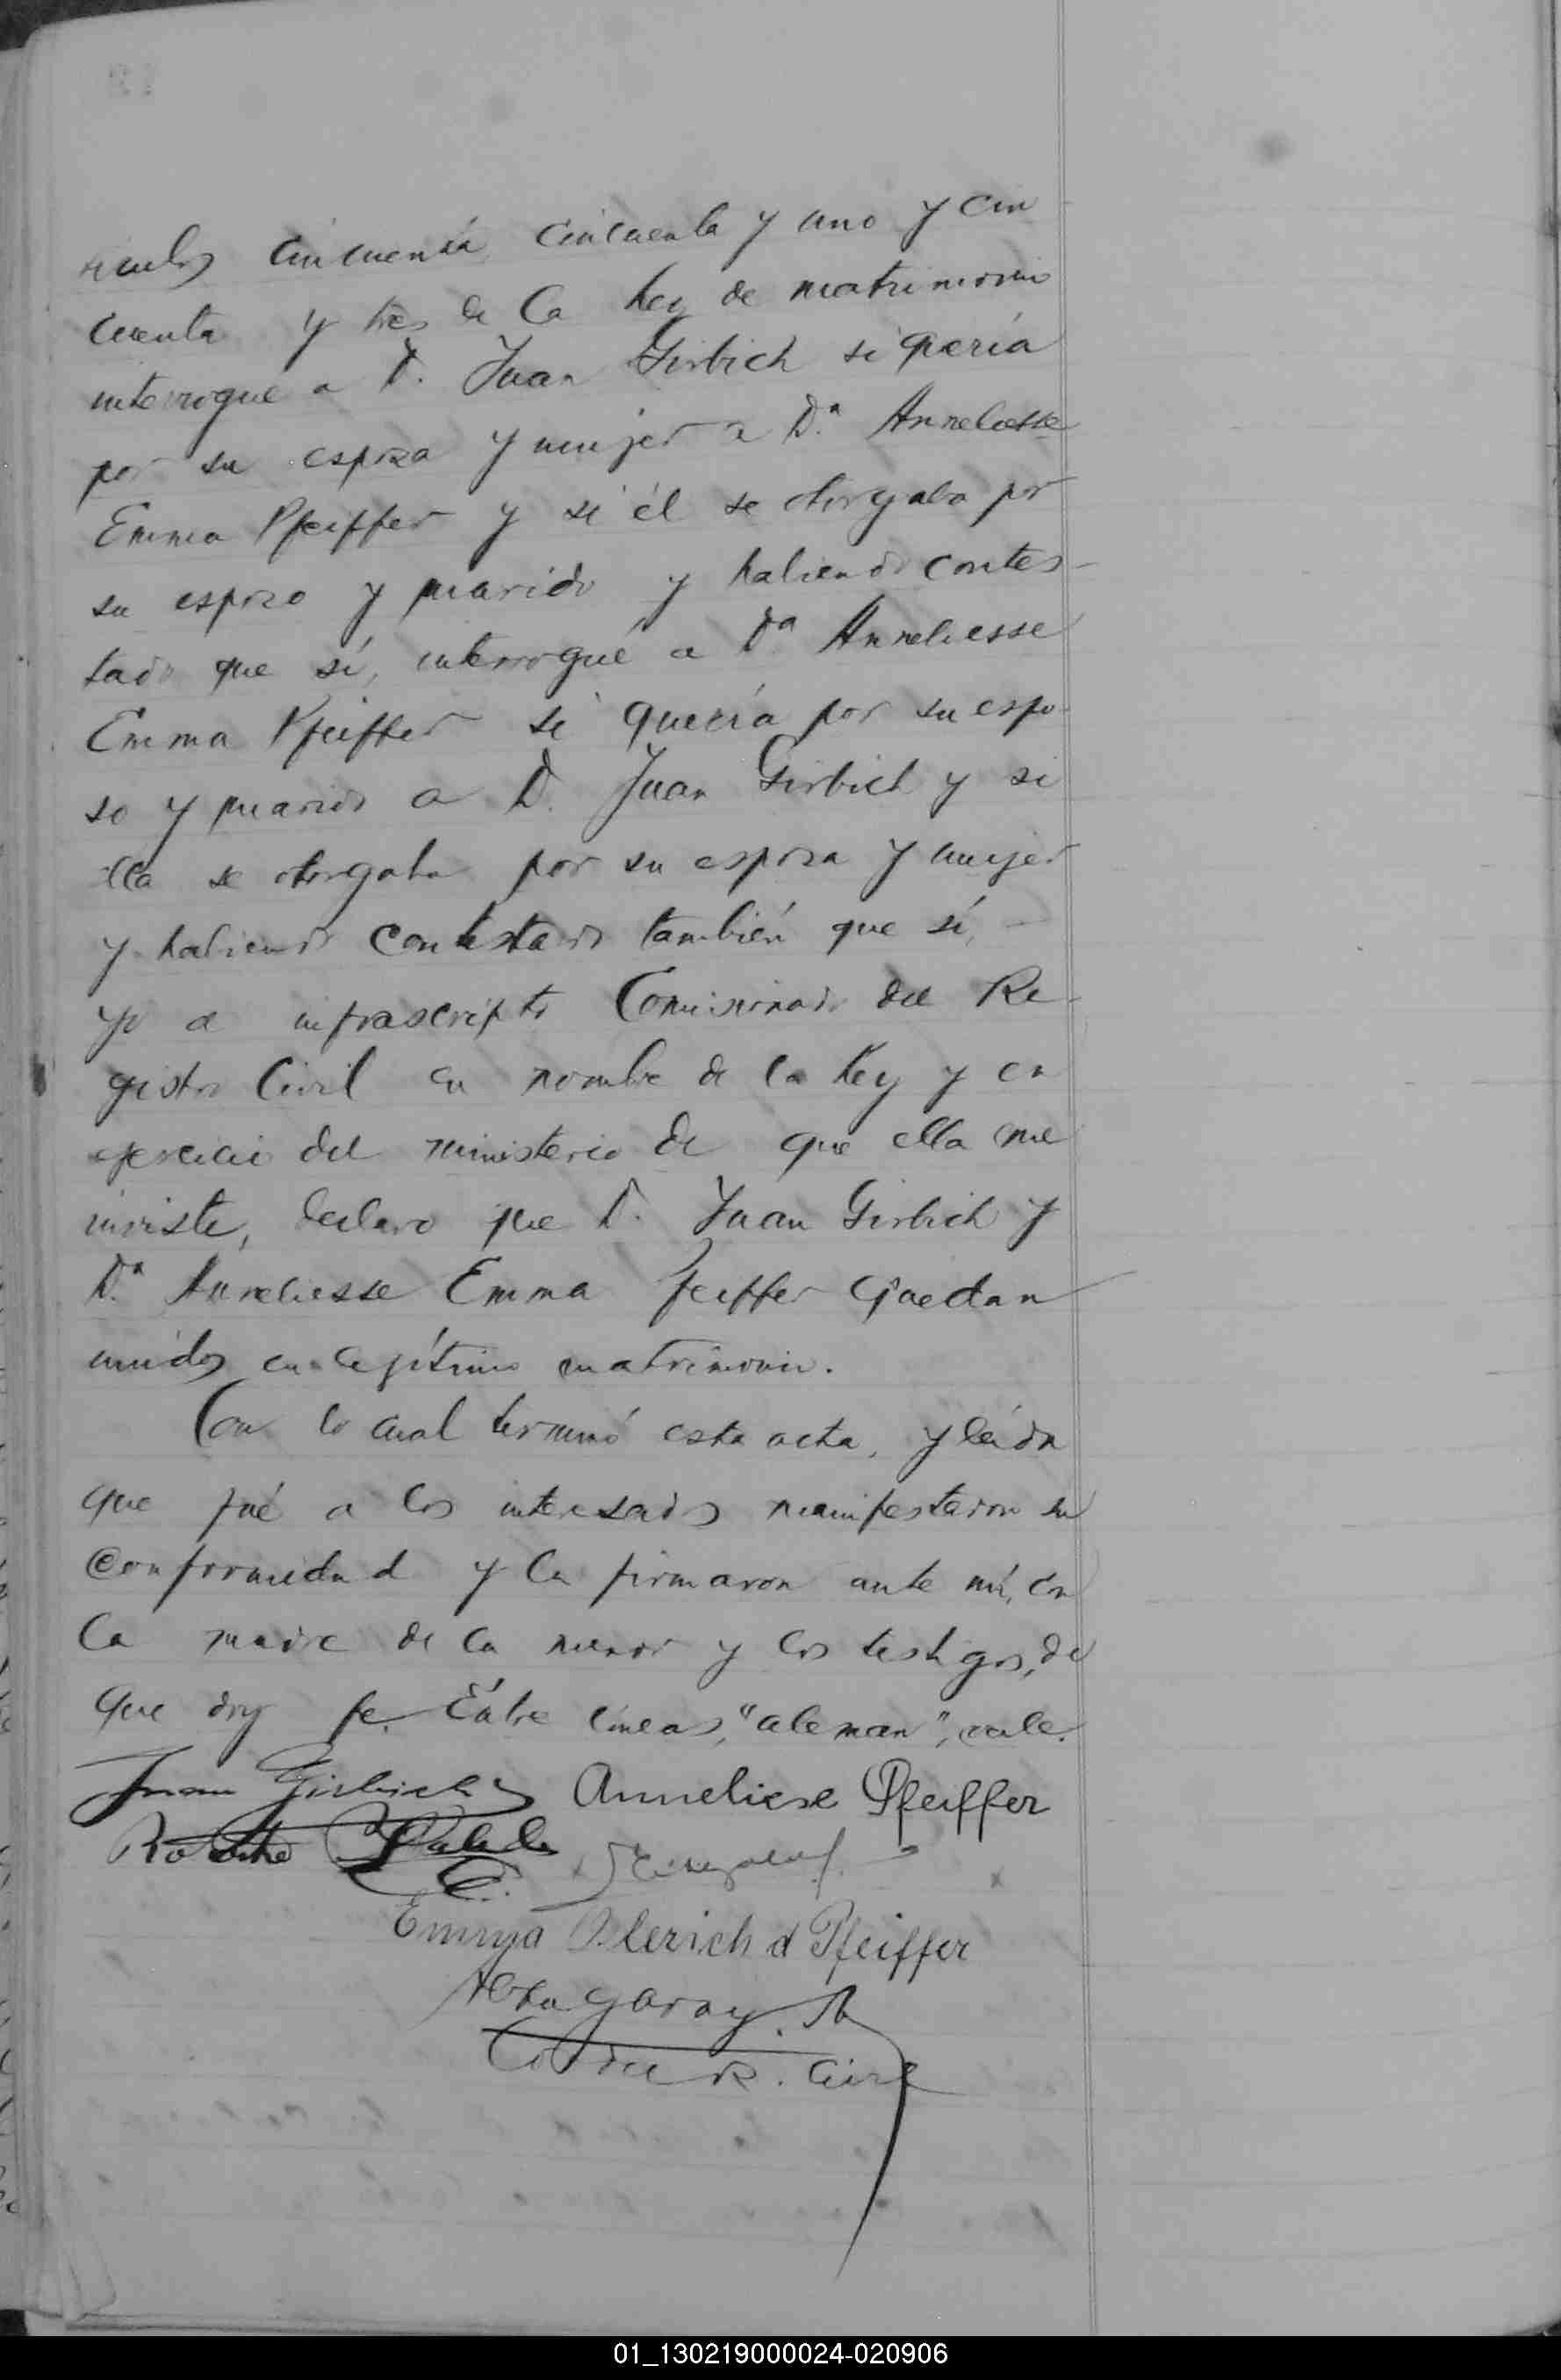 ticulos cincuenta, cincuenta y uno y cin
cuenta y tres de la ley de matrimonio
interrogué a D. Juan Girbich si quería
por su esposa y mujer a D.ª Anneliesse
Emma Pfeiffer y si él se otorgaba por
su esposo y marido y habiendo contes-
tado que sí, interrogué a Dª Anneliesse
Emma Pfeiffer si quería por su espo-
so y marido a D. Juan Girbich y si
ella se otorgaba por su esposa y mujer
y habiendo contestado también que sí,
yo el infrascripto Comisionado del Re-
gistro Civil en nombre de la ley y en
ejercicio del ministerio de que ella me
inviste, declaro que D. Juan Girbich y
D.ª Anneliesse Emma Pfeiffer quedan
unidos en legítimo matrimonio.
Con lo cual terminó esta acta, y leída
que fué a los interesados manifestaron su
conformidad y la firmaron ante mí, con
la madre de la menor y los testigos, de
que doy fe. Entre líneas, "aleman", vale.
Juan Girbich Anneliese Pfeiffer
Emma d Pfeiffer
Garay
Co del R. Civil
01_130219000024-020906